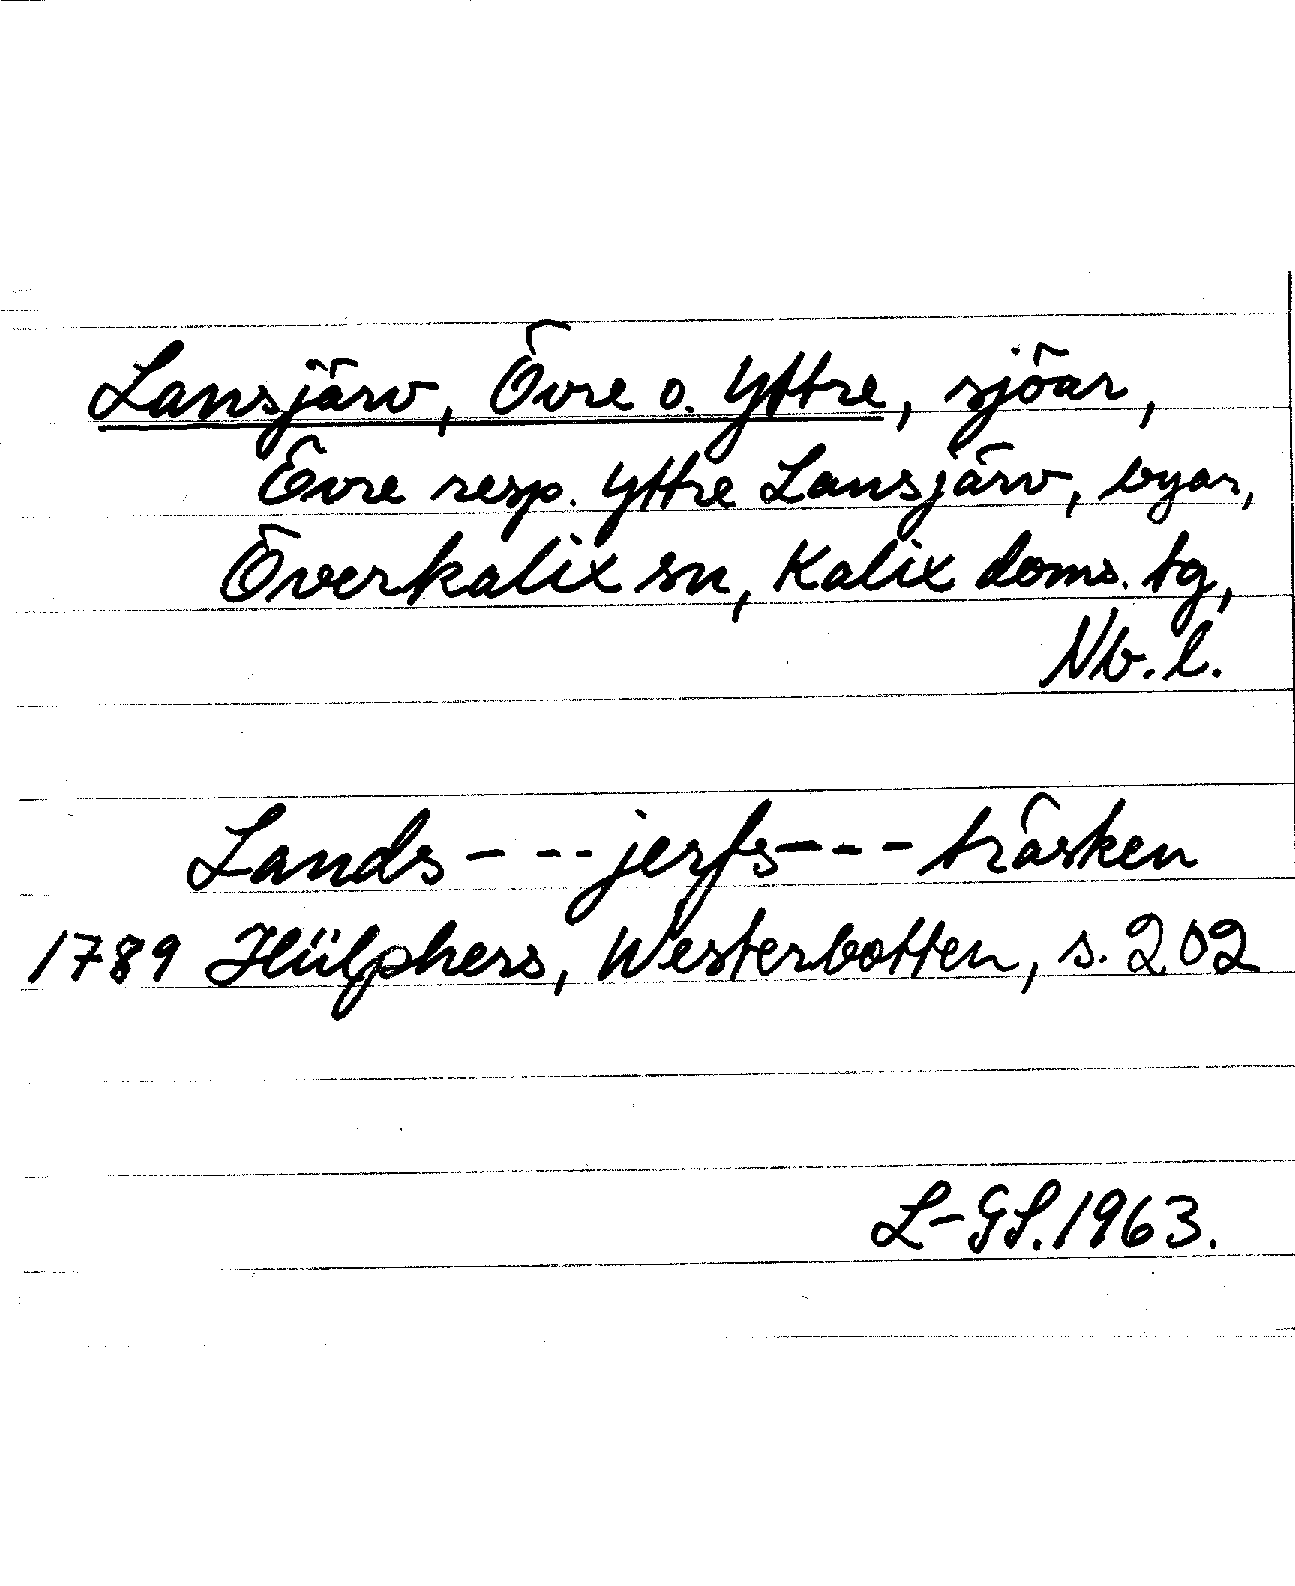 Lansjärv, Övre o. Yttre, sjöar,
Övre resp. Yttre Lansjärv, byar,
Överkalix sn, Kalix doms. tg,
Nb. l.
Lands---jerfs---träsken
1789 Hülphers, Westerbotten, s. 202
L-GL. 1963.